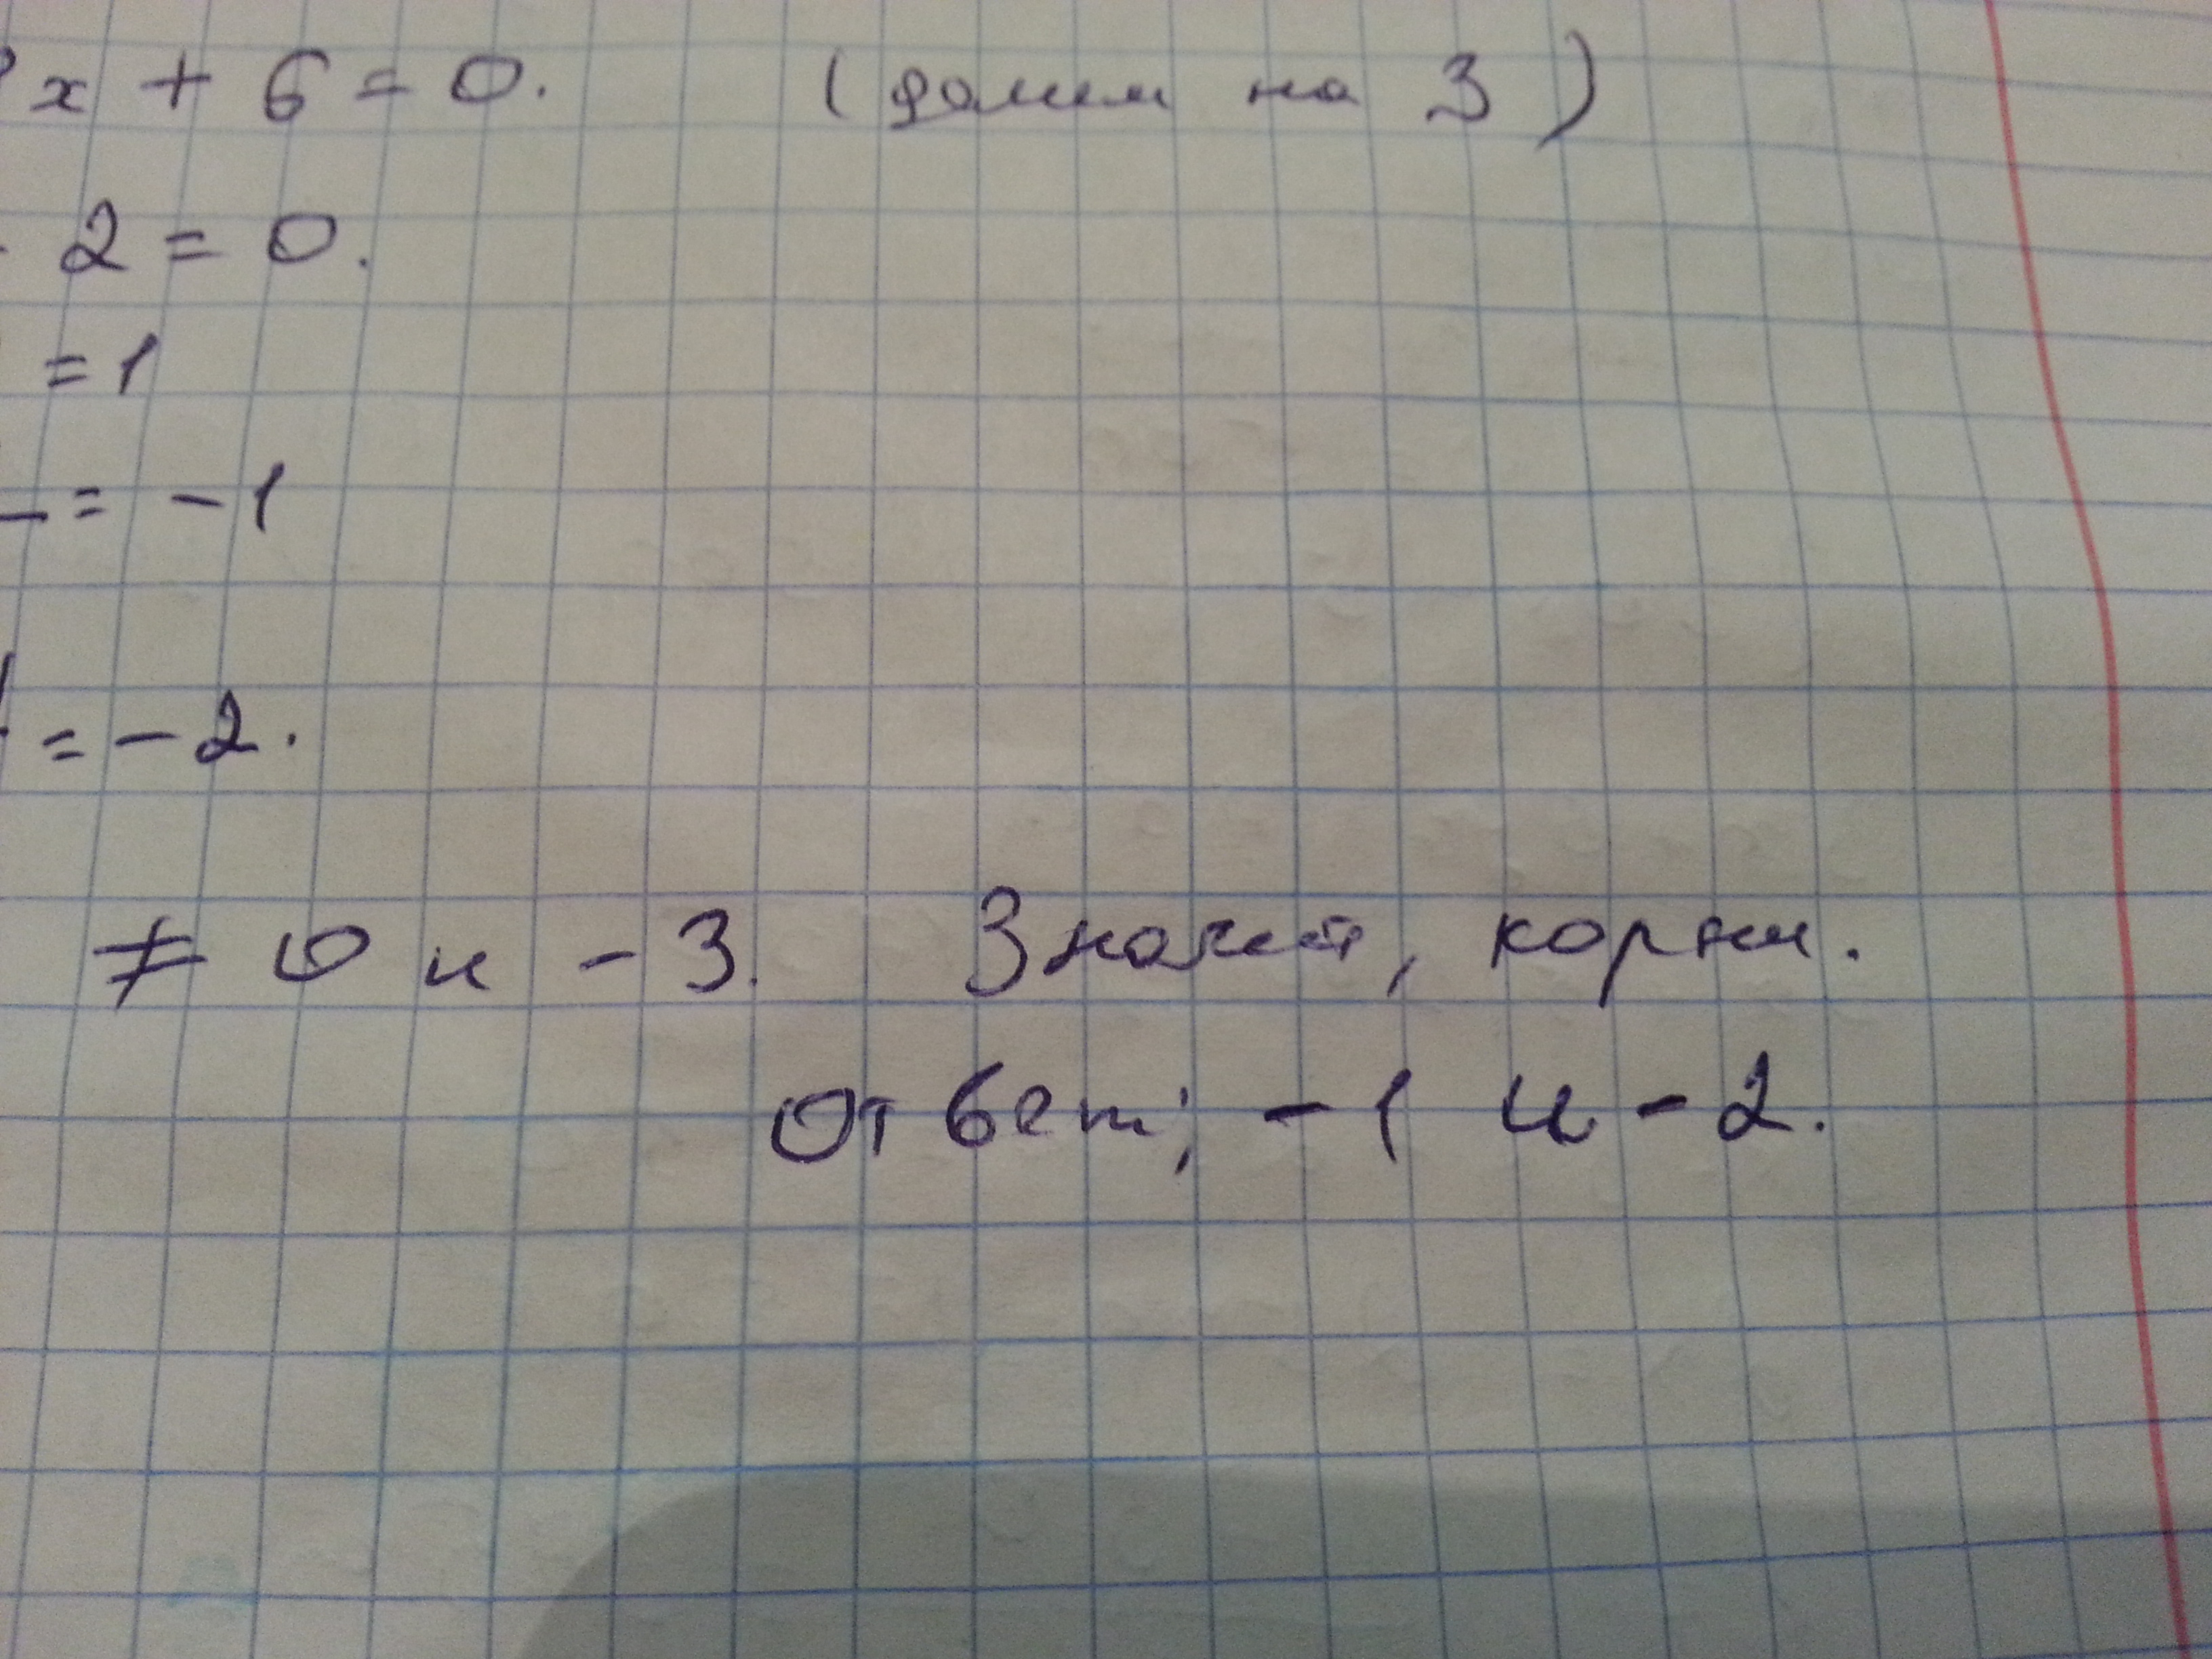 x + 6 = 0. (делим на 3)
2 = 0.
= 1
= -1
= -2.
≠ 0 и -3. Значит, корни.
Ответ; -1 и -2.